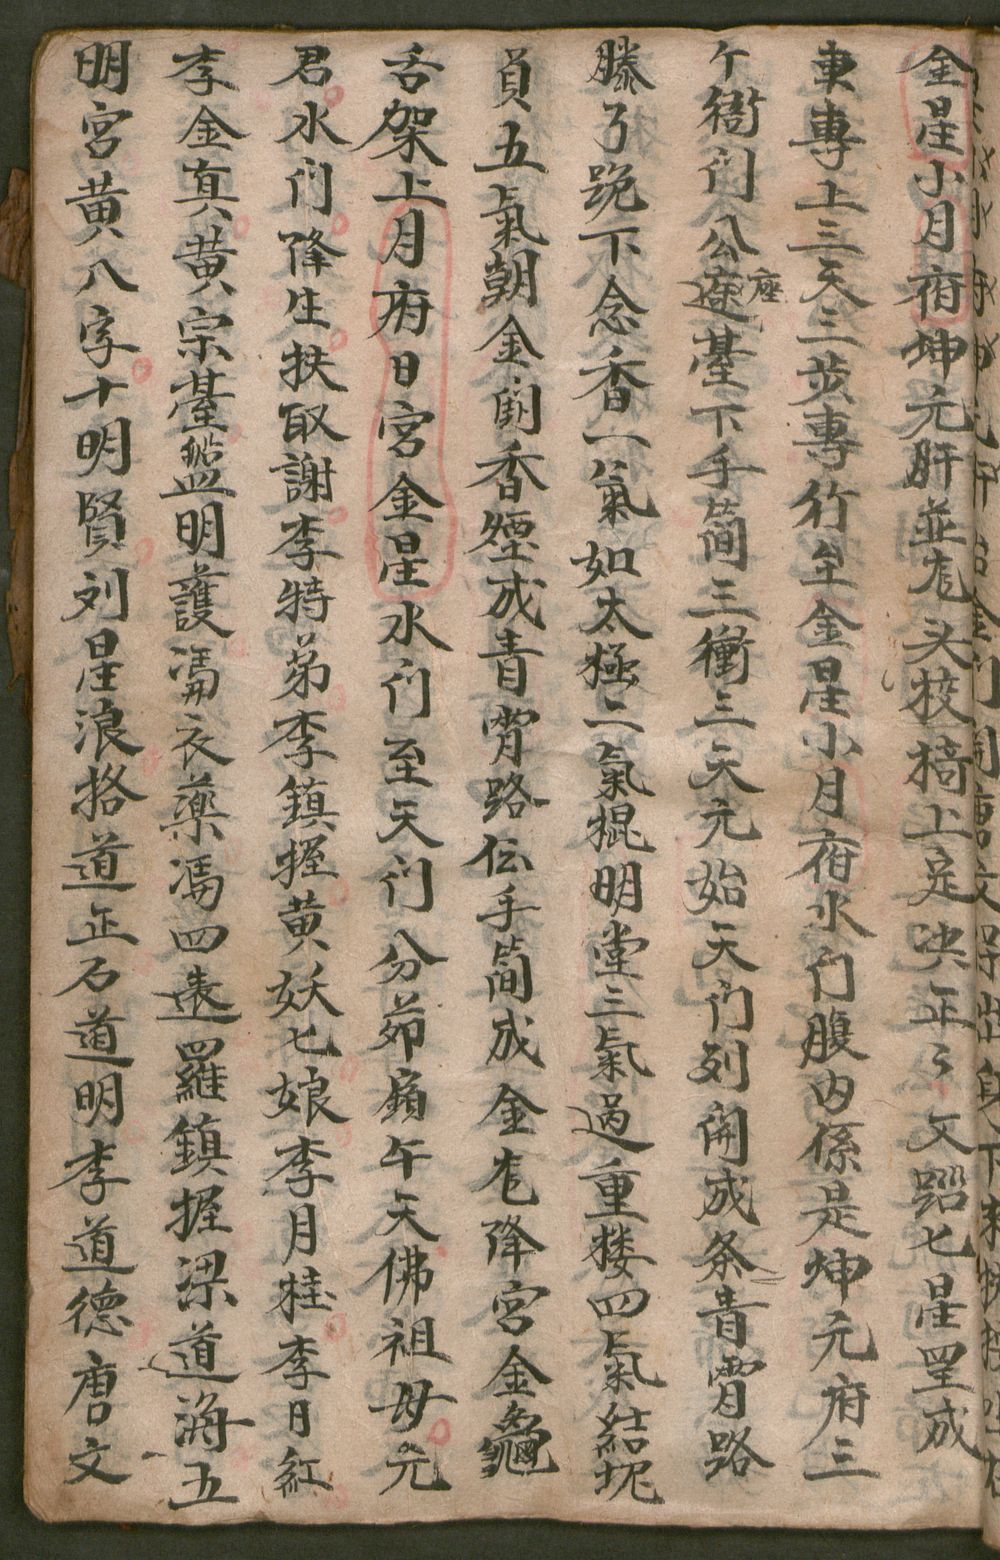 金星小月府坤元肝並𡯁头校椅上是决正〻文蹈七星罡成
車專上三天三步專竹至金星小月府水门腹内係是坤元府三
个衙门公座臺下手筒三衝三天元始天门列開成条青霄路
滕了跪下念香一氣如太極二氣提明堂三氣過重楼四氣結坭
員五氣朝金闕香煙成青霄路伝手简成金𡯁降宫金龜
舌架上月府日宫金星水门至天门分茆嶺午天佛祖母元
君水门降生扶取謝李特弟李鎮握黄妖七娘李月桂李日紅
李金真黄宗臺盟明護馮衣藥馮四表羅鎮握梁道海五
明宫黄八字十明賢刘星浪格道正石道明李道德唐文